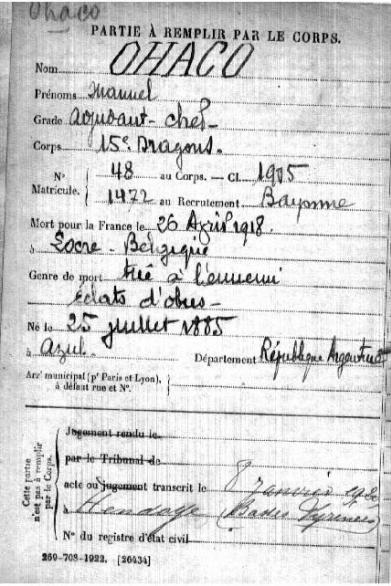 Ohaco
PARTIE À REMPLIR PAR LE CORPS.
Nom OHACO
Prénoms Manuel
Grade adjudant-chef-
Corps 15e Dragons.
N° 48 au Corps. — Cl. 1905
Matricule. 1472 au Recrutement Bayonne
Mort pour la France le 26 Avril 1918.
à Locre - Belgique
Genre de mort tué à l'ennemi
éclats d'obus-
Né le 25 juillet 1885
à Azul. Département République Argentine
Arrt municipal (pr Paris et Lyon),
à défaut rue et N°.
Cette partie
n'est pas à remplir
par le Corps.
Jugement rendu le
par le Tribunal de
acte ou jugement transcrit le 8 janvier
à Hendaye (Basses Pyrénées)
N° du registre d'état civil
259-708-1922. [26434]